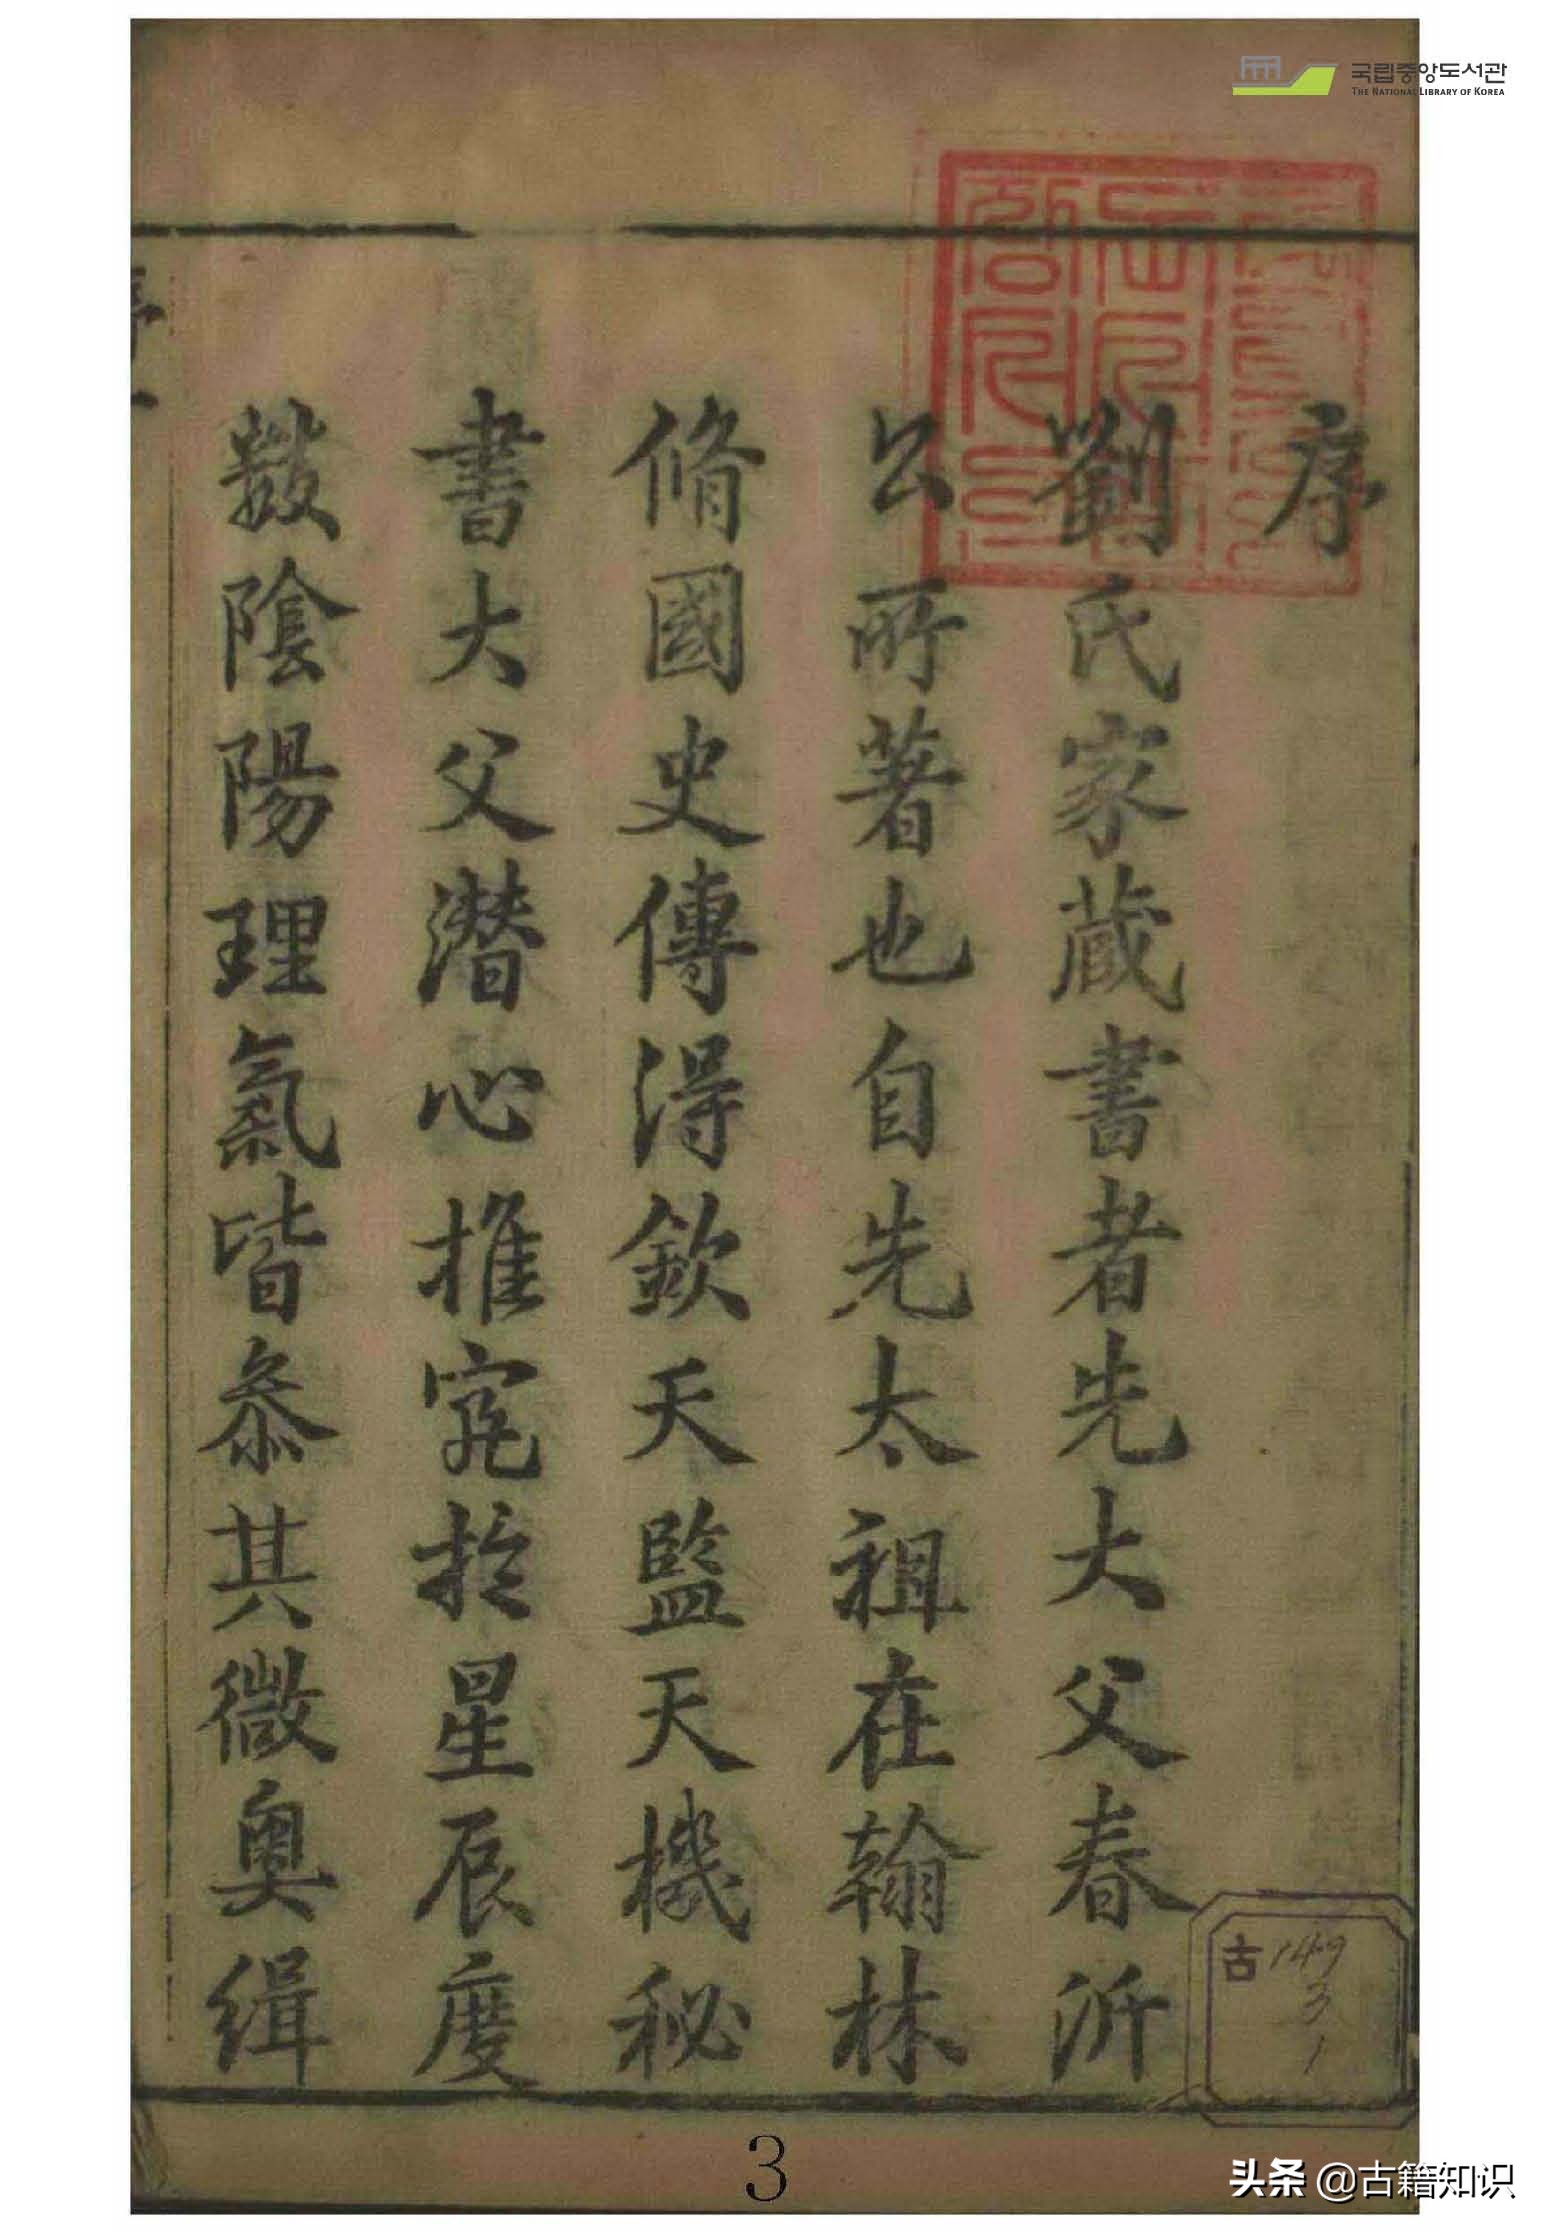 국립중앙도서관
THE NATIONAL LIBRARY OF KOREA
序
劉氏家藏書者先大父春沂
公所著也自先太祖在翰林
脩國史傳得欽天監天機秘
書大父潛心推究於星辰度
數陰陽理氣皆叅其微奧緝
序
古 149
3
1
3
头条 @古籍知识